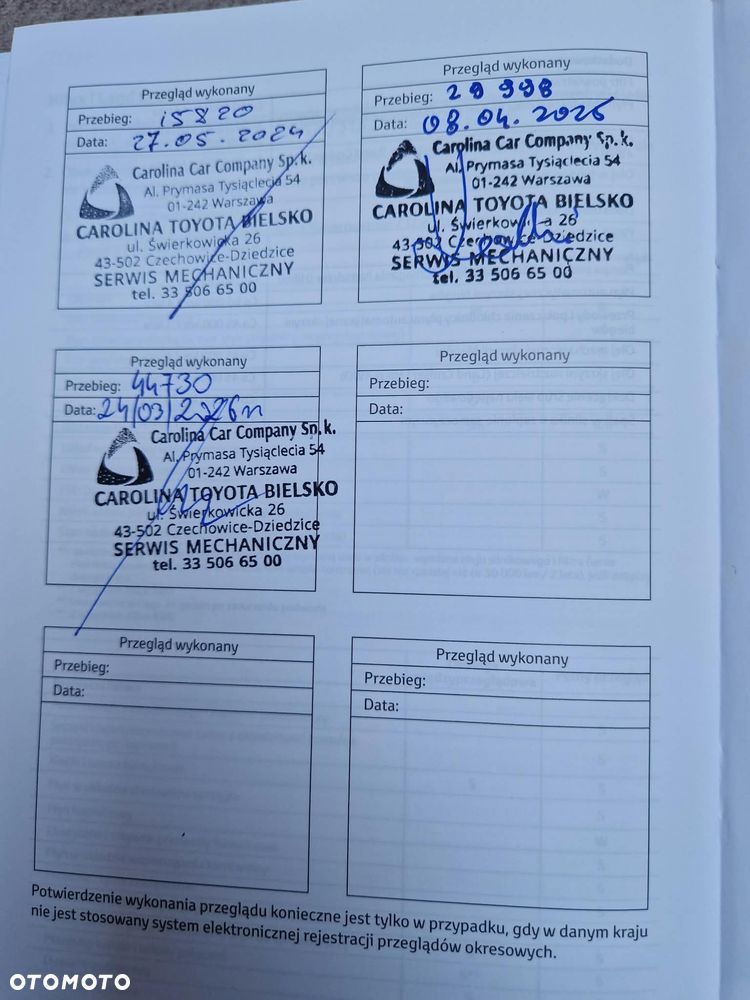 Przegląd wykonany
Przebieg: 15820
Data: 27.05.2024
Carolina Car Company Sp.k.
Al. Prymasa Tysiąclecia 54
01-242 Warszawa
CAROLINA TOYOTA BIELSKO
ul. Świerkowicka 26
43-502 Czechowice-Dziedzice
SERWIS MECHANICZNY
tel. 33 506 65 00
Przegląd wykonany
Przebieg: 29 998
Data: 08.04.2025
Carolina Car Company Sp.k.
Al. Prymasa Tysiąclecia 54
01-242 Warszawa
CAROLINA TOYOTA BIELSKO
ul. Świerkowicka 26
43-502 Czechowice-Dziedzice
SERWIS MECHANICZNY
tel. 33 506 65 00
Przegląd wykonany
Przebieg: 44730
Data: 24/03/2026
Carolina Car Company Sp.k.
Al. Prymasa Tysiąclecia 54
01-242 Warszawa
CAROLINA TOYOTA BIELSKO
ul. Świerkowicka 26
43-502 Czechowice-Dziedzice
SERWIS MECHANICZNY
tel. 33 506 65 00
Przegląd wykonany
Przebieg:
Data:
Przegląd wykonany
Przebieg:
Data:
Przegląd wykonany
Przebieg:
Data:
Potwierdzenie wykonania przeglądu konieczne jest tylko w przypadku, gdy w danym kraju
nie jest stosowany system elektronicznej rejestracji przeglądów okresowych.
OTOMOTO